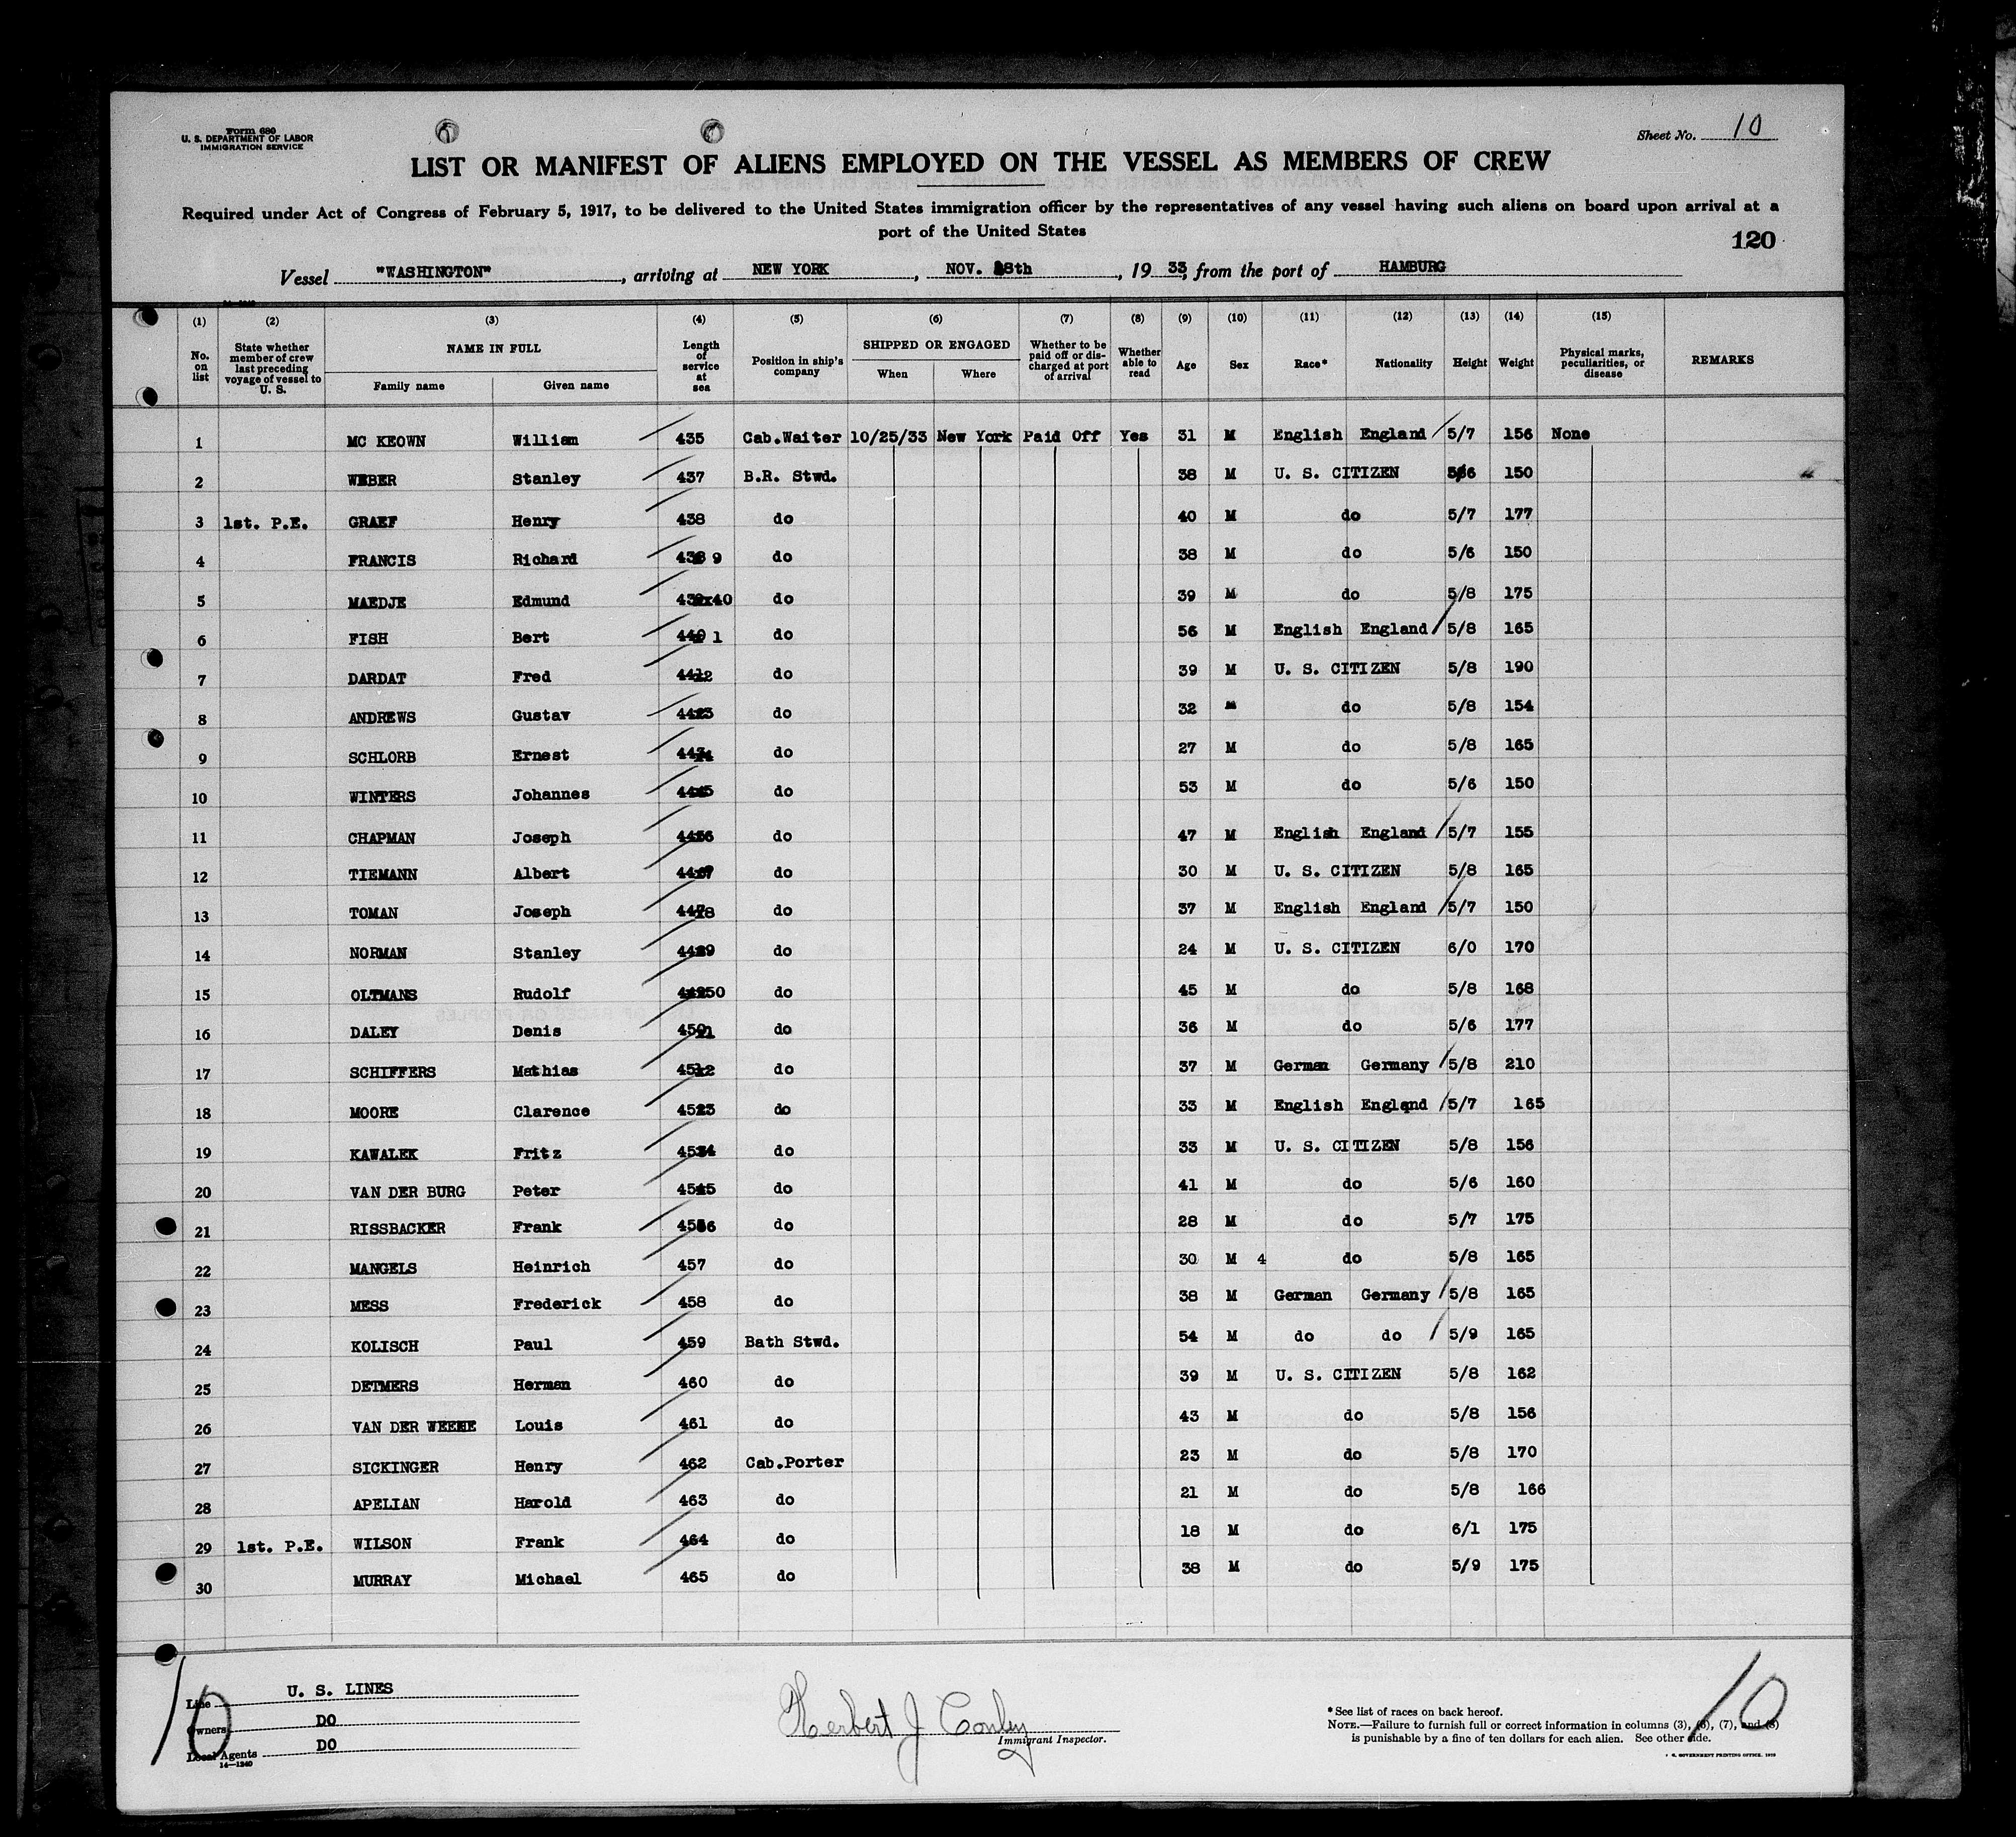 Form 680
U. S. DEPARTMENT OF LABOR
IMMIGRATION SERVICE
Sheet No. 10
LIST OR MANIFEST OF ALIENS EMPLOYED ON THE VESSEL AS MEMBERS OF CREW
Required under Act of Congress of February 5, 1917, to be delivered to the United States immigration officer by the representatives of any vessel having such aliens on board upon arrival at a
port of the United States
120
Vessel "WASHINGTON", arriving at NEW YORK, NOV. 28th, 1933, from the port of HAMBURG
(1) (2) (3) (4) (5) (6) (7) (8) (9) (10) (11) (12) (13) (14) (15)
No. on list
State whether member of crew last preceding voyage of vessel to U. S.
NAME IN FULL
Family name Given name
Length of service at sea
Position in ship's company
SHIPPED OR ENGAGED
When Where
Whether to be paid off or discharged at port of arrival
Whether able to read
Age
Sex
Race*
Nationality
Height
Weight
Physical marks, peculiarities, or disease
REMARKS
1 MC KEOWN William 435 Cab.Waiter 10/25/33 New York Paid Off Yes 31 M English England 5/7 156 None
2 WEBER Stanley 437 B.R. Stwd. 38 M U. S. CITIZEN 5/6 150
3 1st. P.E. GRAEF Henry 438 do 40 M do 5/7 177
4 FRANCIS Richard 438 9 do 38 M do 5/6 150
5 MAEDJE Edmund 439x40 do 39 M do 5/8 175
6 FISH Bert 440 1 do 56 M English England 5/8 165
7 DARDAT Fred 4412 do 39 M U. S. CITIZEN 5/8 190
8 ANDREWS Gustav 4423 do 32 M do 5/8 154
9 SCHLORB Ernest 4434 do 27 M do 5/8 165
10 WINTERS Johannes 4445 do 53 M do 5/6 150
11 CHAPMAN Joseph 4456 do 47 M English England 5/7 155
12 TIEMANN Albert 4467 do 30 M U. S. CITIZEN 5/8 165
13 TOMAN Joseph 4478 do 37 M English England 5/7 150
14 NORMAN Stanley 4489 do 24 M U. S. CITIZEN 6/0 170
15 OLTMANS Rudolf 44950 do 45 M do 5/8 168
16 DALEY Denis 4501 do 36 M do 5/6 177
17 SCHIFFERS Mathias 4512 do 37 M German Germany 5/8 210
18 MOORE Clarence 4523 do 33 M English England 5/7 165
19 KAWALEK Fritz 4534 do 33 M U. S. CITIZEN 5/8 156
20 VAN DER BURG Peter 4545 do 41 M do 5/6 160
21 RISSBACKER Frank 4556 do 28 M do 5/7 175
22 MANGELS Heinrich 457 do 30 M 4 do 5/8 165
23 MESS Frederick 458 do 38 M German Germany 5/8 165
24 KOLISCH Paul 459 Bath Stwd. 54 M do do 5/9 165
25 DETMERS Herman 460 do 39 M U. S. CITIZEN 5/8 162
26 VAN DER WEEHE Louis 461 do 43 M do 5/8 156
27 SICKINGER Henry 462 Cab.Porter 23 M do 5/8 170
28 APELIAN Harold 463 do 21 M do 5/8 166
29 1st. P.E. WILSON Frank 464 do 18 M do 6/1 175
30 MURRAY Michael 465 do 38 M do 5/9 175
10
10
Line U. S. LINES
Owners DO
Local Agents DO
14—1240
Herbert J Conley
Immigrant Inspector.
* See list of races on back hereof.
NOTE.—Failure to furnish full or correct information in columns (3), (5), (7), and (8)
is punishable by a fine of ten dollars for each alien. See other side.
GOVERNMENT PRINTING OFFICE